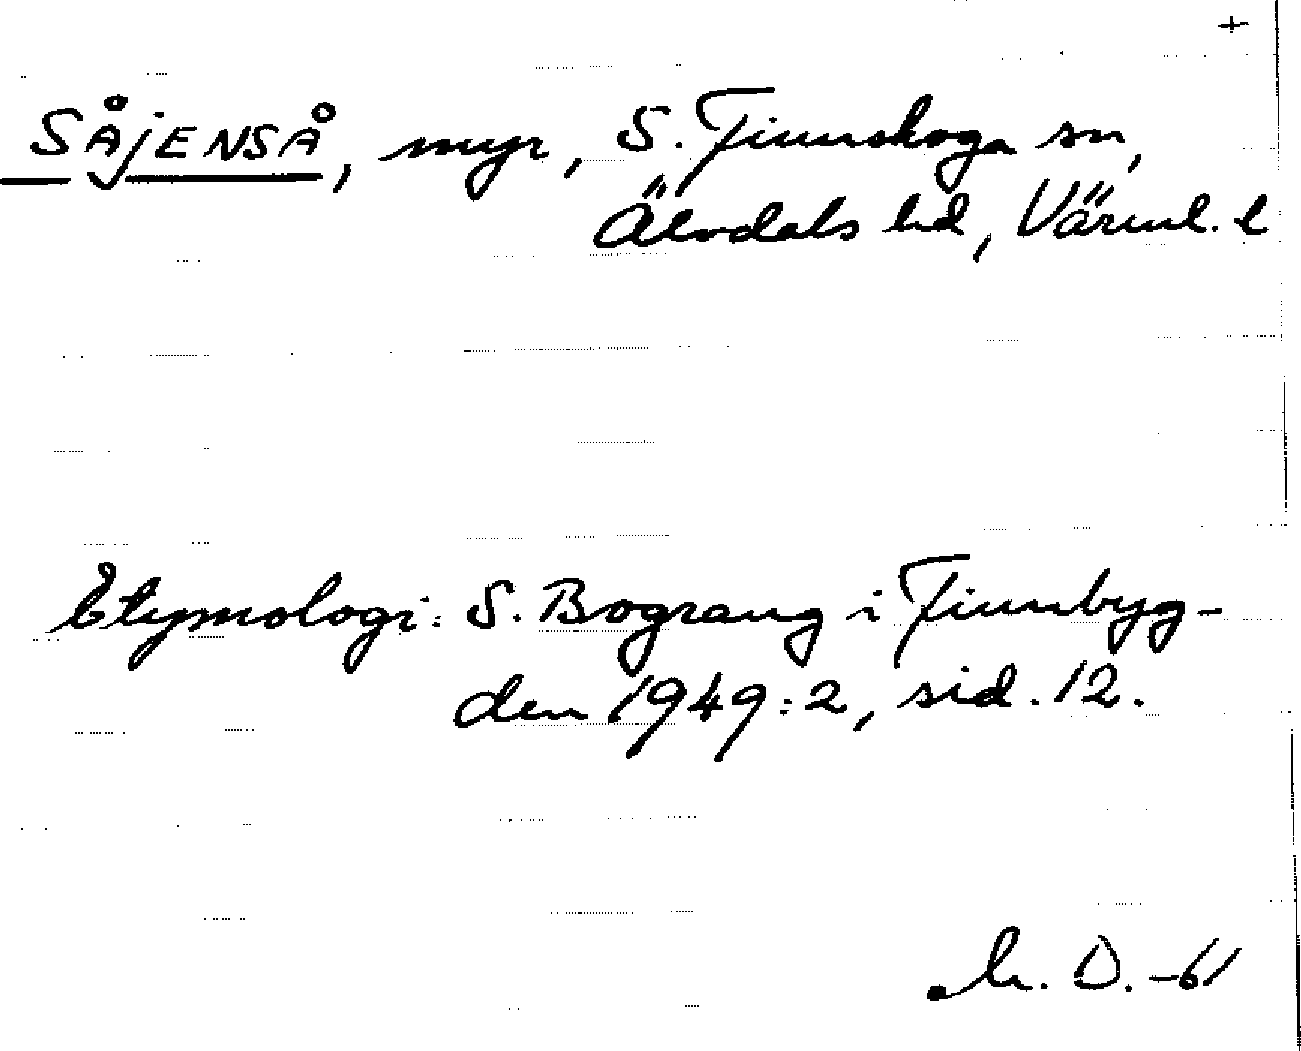 +
SÅJENSÅ, myr, S. Finnskoga sn,
Älvdals hd, Värml. l
Etymologi: S. Bograng i Finnbyg-
den 1949:2, sid. 12.
D. -61